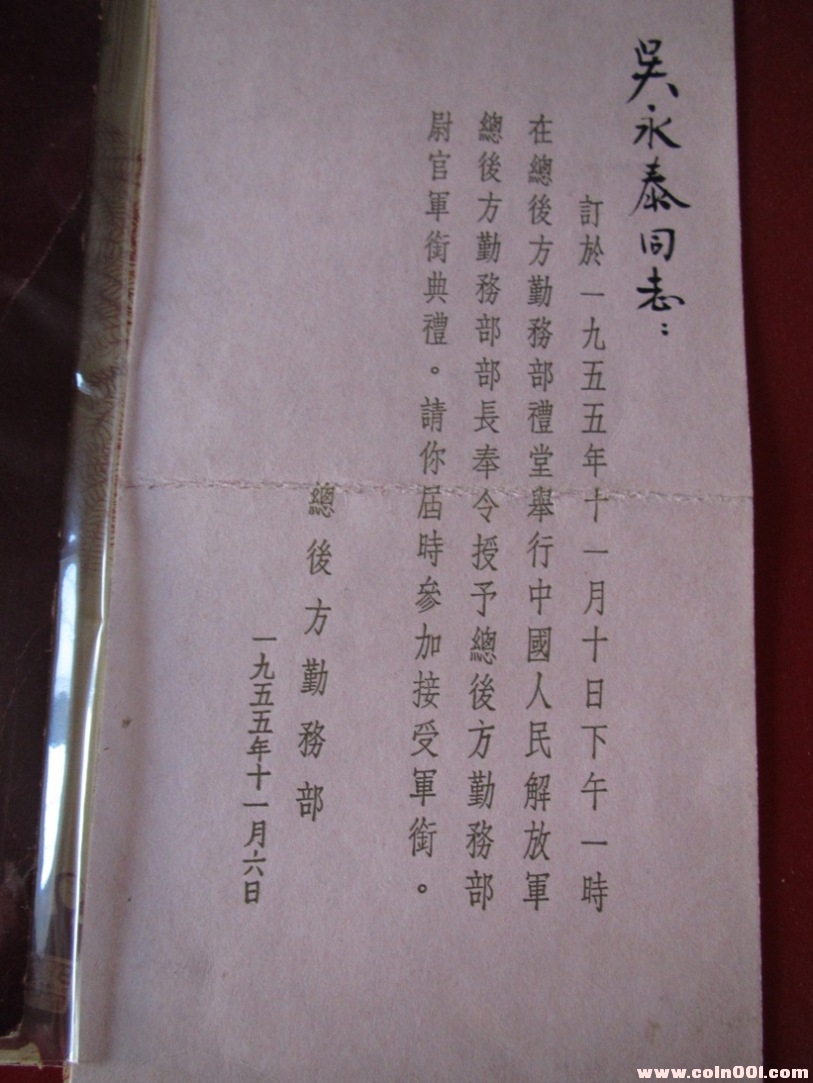 吳永泰同志：
訂於一九五五年十一月十日下午一時
在總後方勤務部禮堂舉行中國人民解放軍
總後方勤務部部長奉令授予總後方勤務部
尉官軍銜典禮。請你屆時參加接受軍銜。
總後方勤務部
一九五五年十一月六日
www.coin001.com